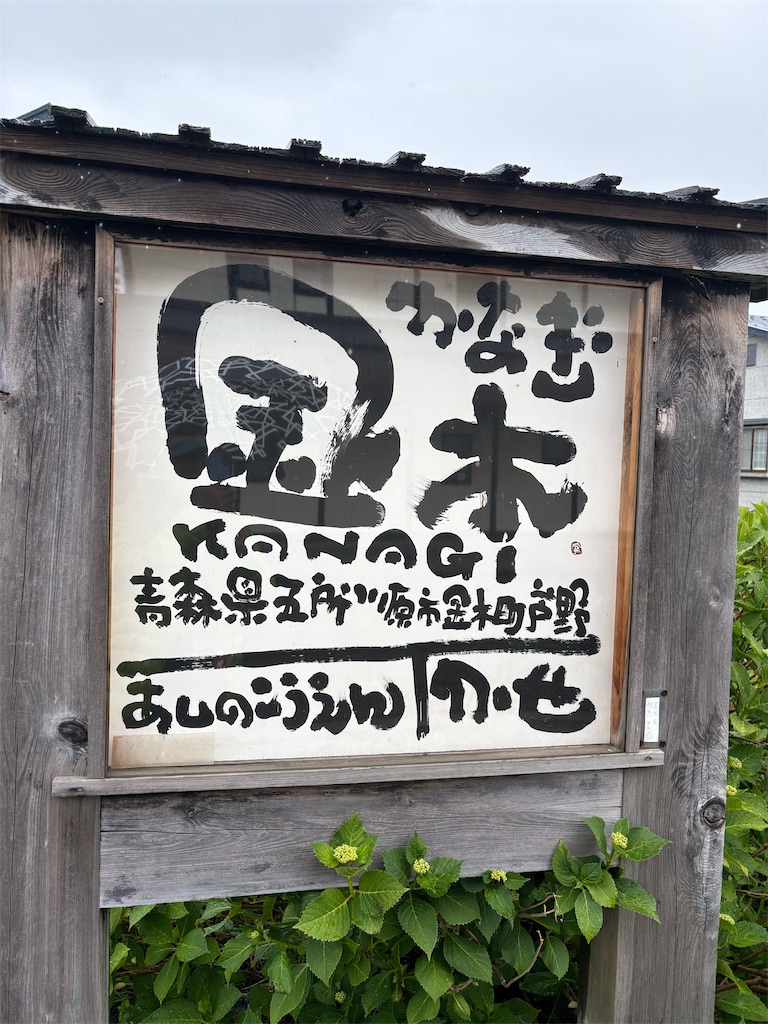 かなぎ
金木
KANAGI
青森県五所川原市金木町芦野
あしのこうえん かせ